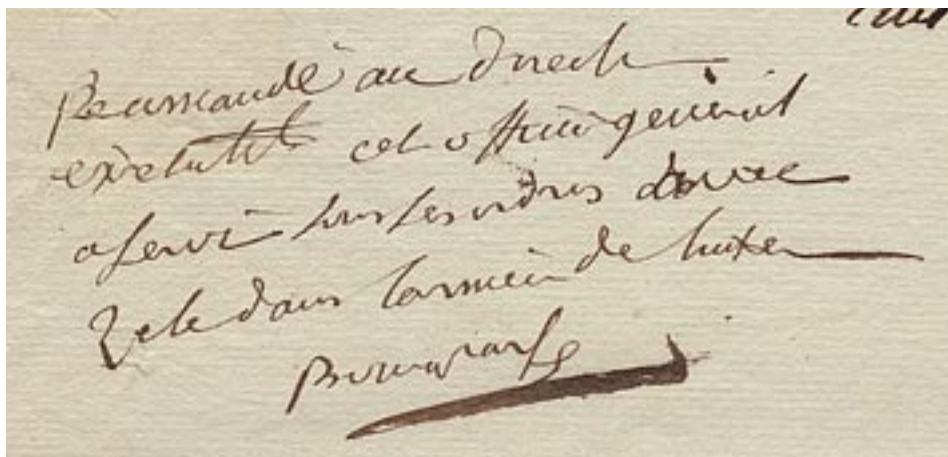 Recommandé au Direct
exécutif cet officier général
a servi sous ses ordres avec
zele dans l'armée de
Bonaparte